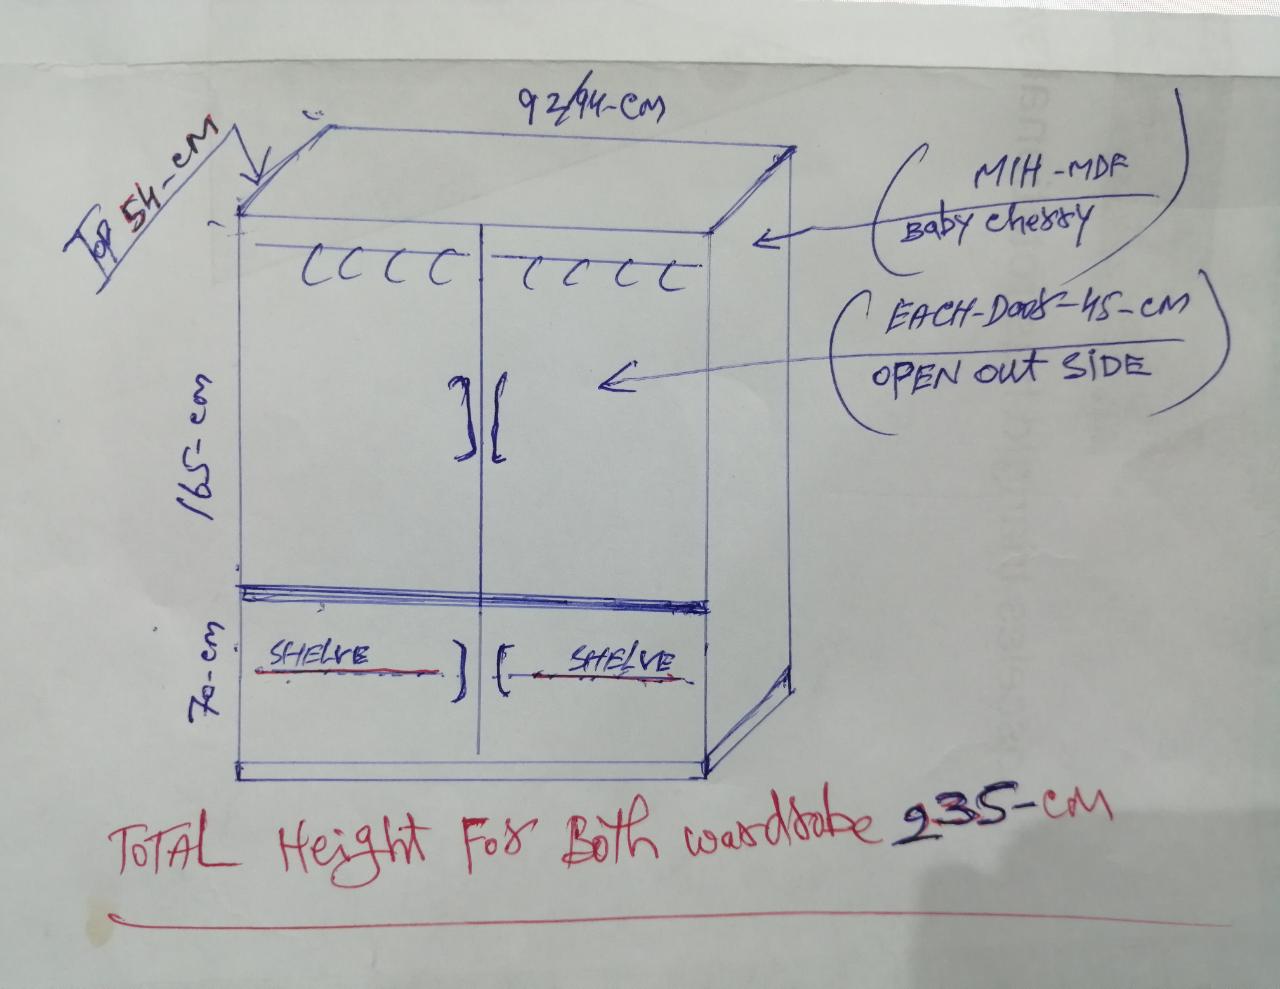 92/94-cm
Top 54-cm
MIH-MDF
Baby cherry
EACH-Door-45-cm
OPEN out SiDE
165-cm
70-cm
SHELVE
SHELVE
TOTAL Height For Both wardrobe 235-cm